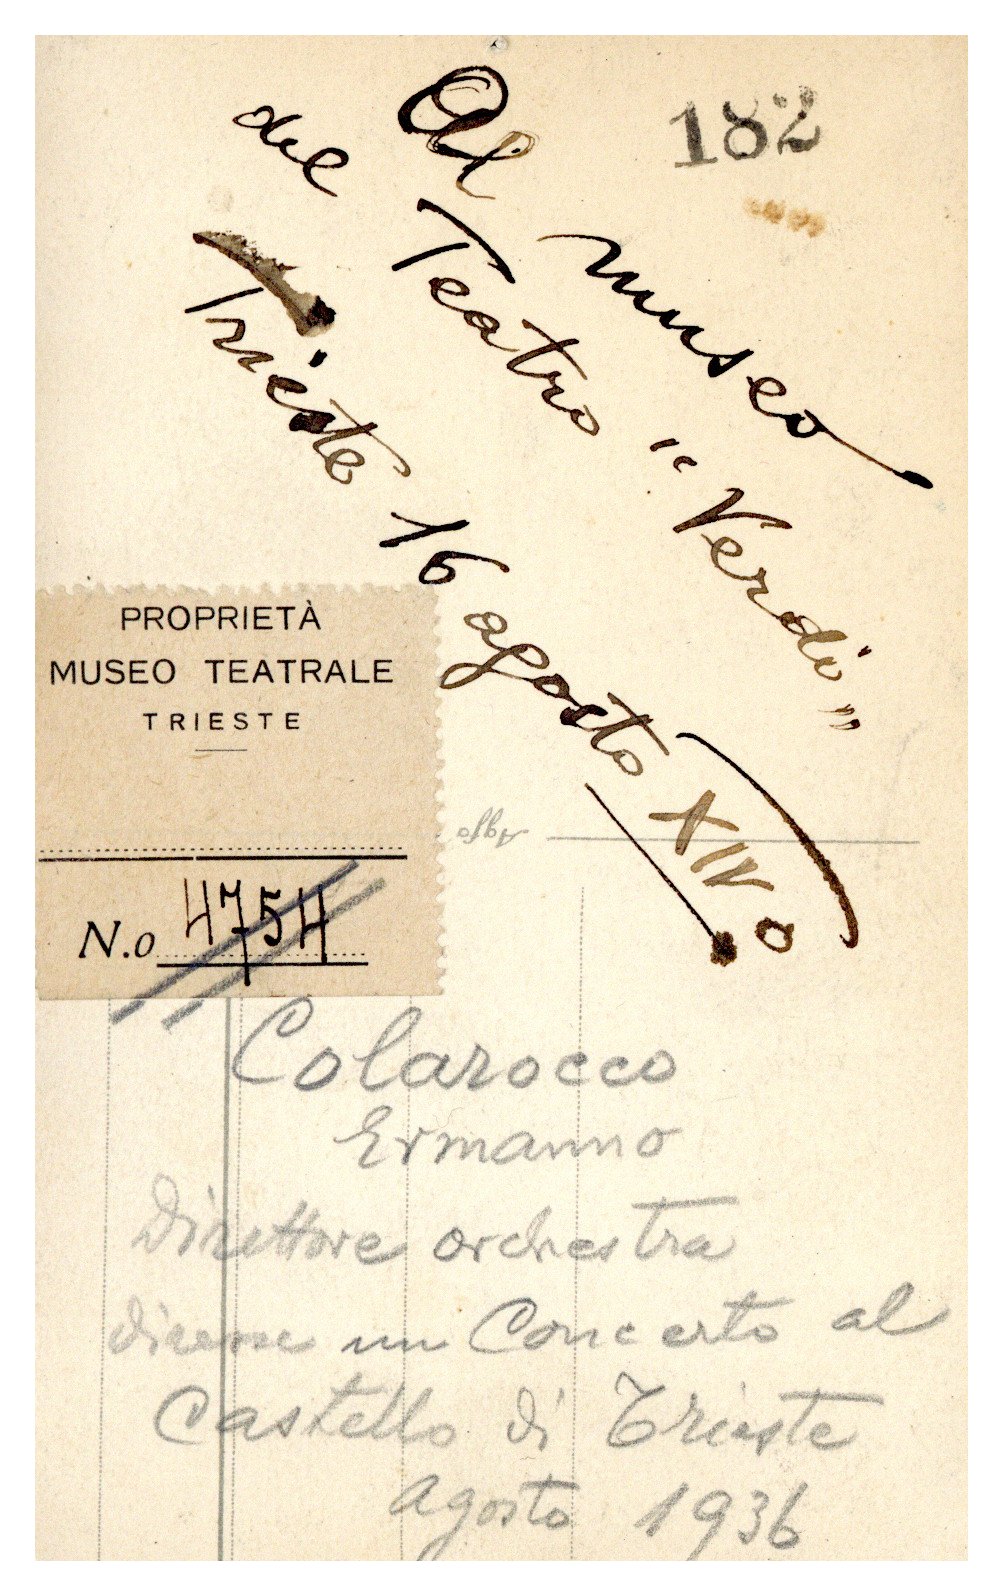 182
Al museo
del Teatro "Verdi"
Trieste 16 agosto XIVº
PROPRIETÀ
MUSEO TEATRALE
TRIESTE
N.o 4754
Agfa
Colarocco
Ermanno
Direttore orchestra
diresse un Concerto al
Castello di Trieste
agosto 1936